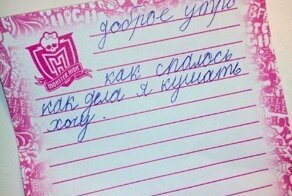 доброе утро
как спалось
как дела я кушать
хочу.
MONSTER HIGH